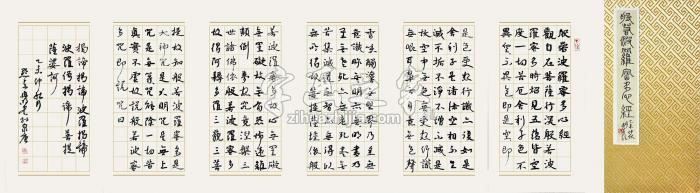 般若波羅蜜多心經
般若波羅蜜多心經
觀自在菩薩行深般若波
羅蜜多時照見五蘊皆空
度一切苦厄舍利子色不
異空空不異色色即是空空即
是色受想行識亦復如是
舍利子是諸法空相不生
不滅不垢不淨不增不減是
故空中無色無受想行識
無眼耳鼻舌身意無色聲
香味觸法無眼界乃至無
意識界無無明亦無無明盡乃
至無老死亦無老死盡無
苦集滅道無智亦無得以
無所得故菩提薩埵依般
若波羅蜜多故心無罣礙
無罣礙故無有恐怖遠離
顛倒夢想究竟涅槃三
世諸佛依般若波羅蜜多
故得阿耨多羅三藐三菩
提故知般若波羅蜜多是
大神咒是大明咒是無上
咒是無等等咒能除一切苦
真實不虛故說般若波羅蜜
多咒即說咒曰
揭諦揭諦波羅揭諦
波羅僧揭諦菩提
薩婆訶
乙未仲秋月